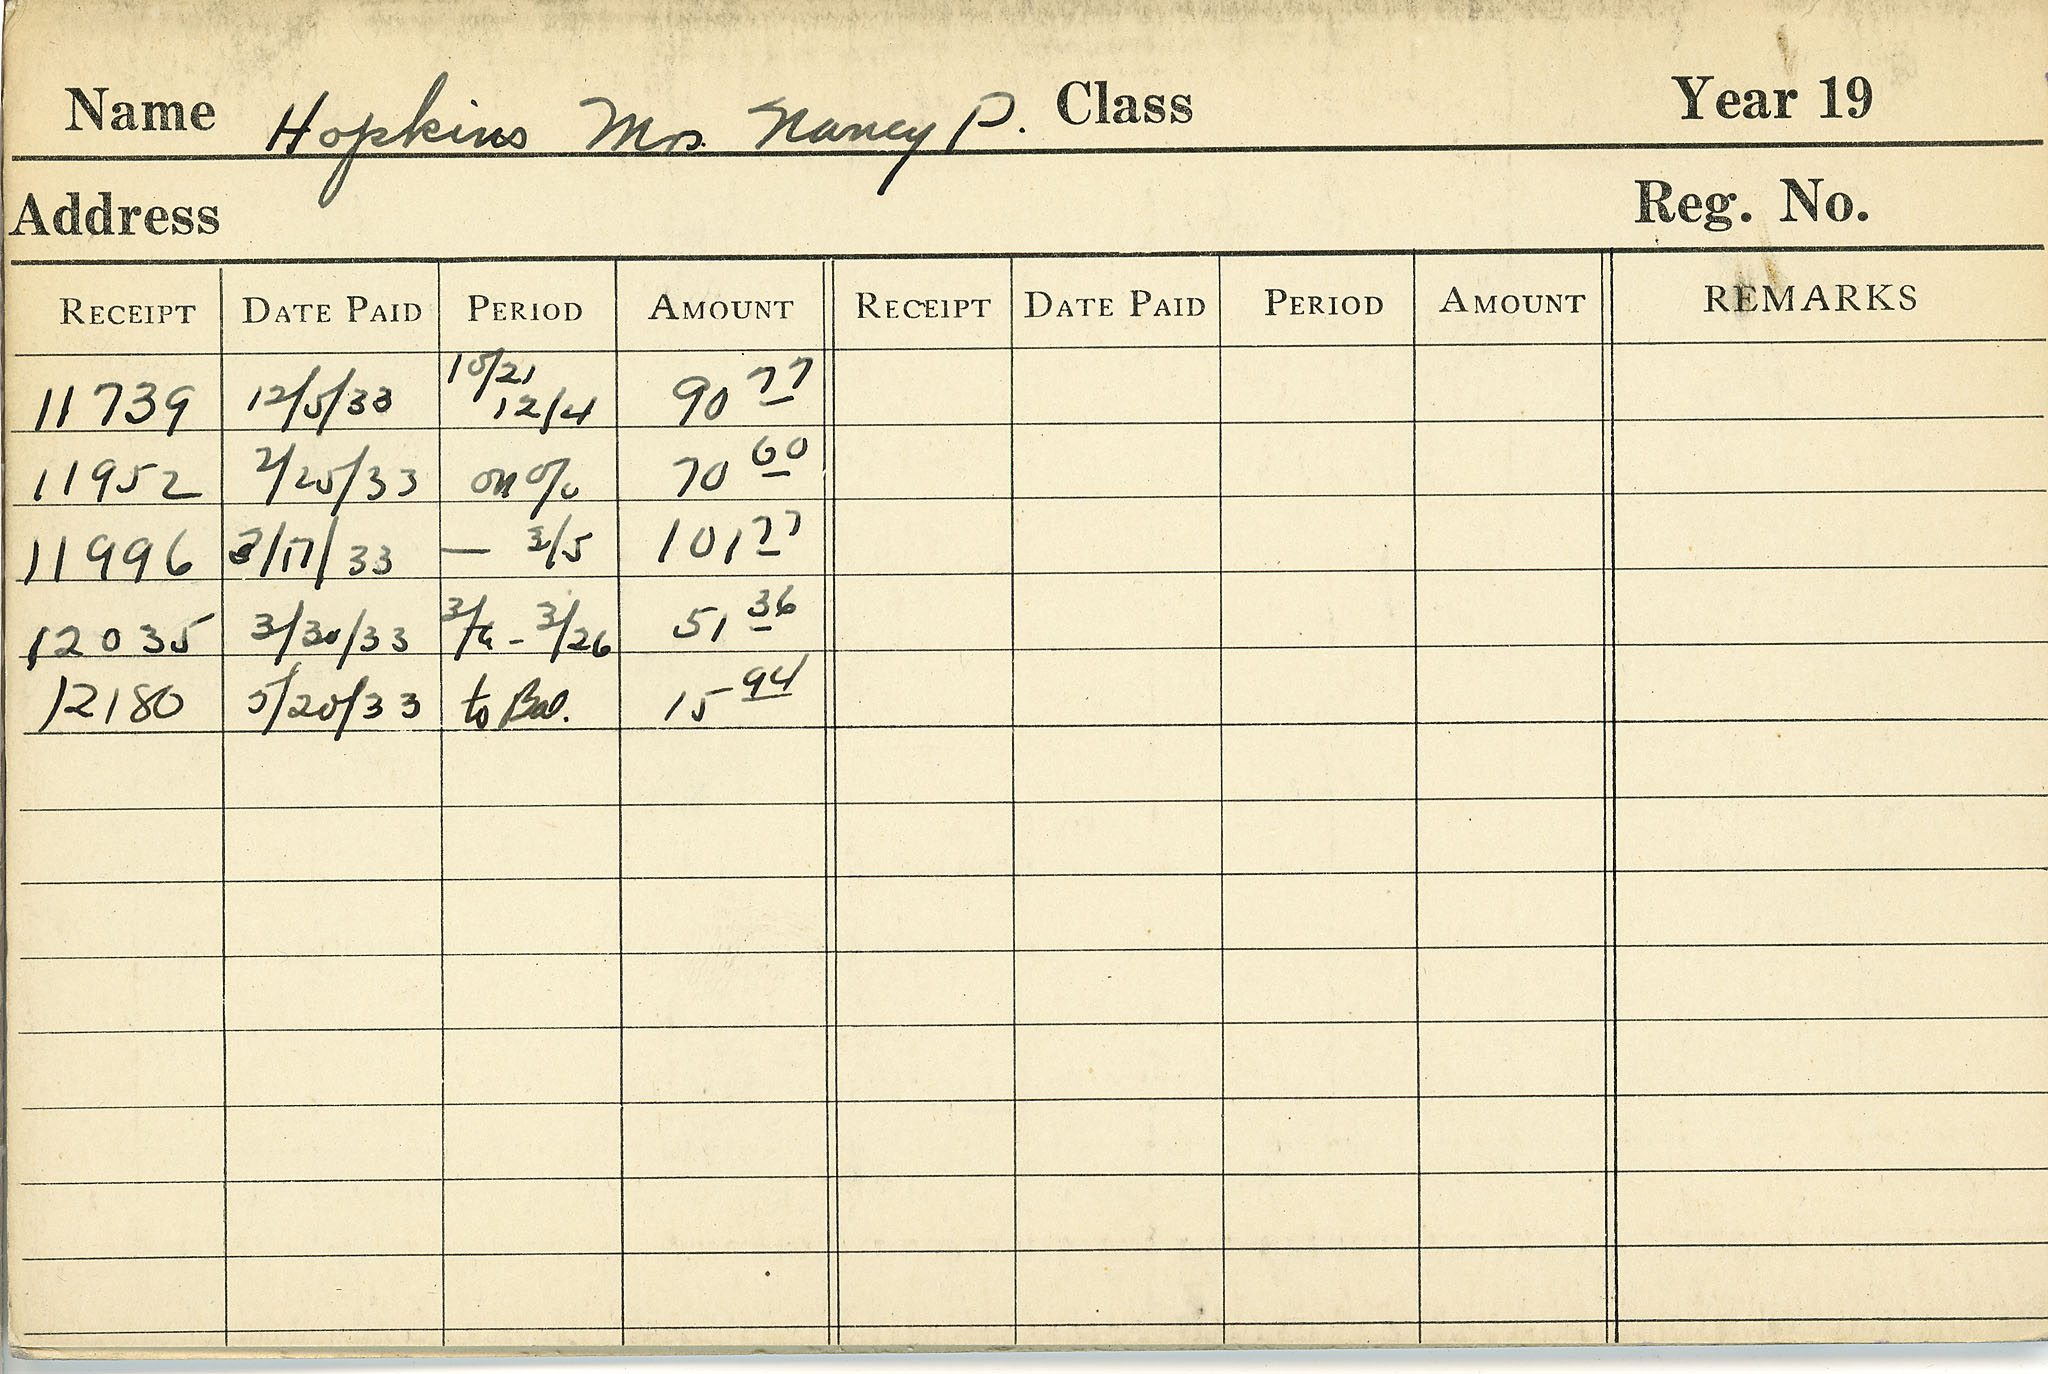 Name Hopkins Mrs. Nancy P. Class Year 19
Address Reg. No.
RECEIPT DATE PAID PERIOD AMOUNT RECEIPT DATE PAID PERIOD AMOUNT REMARKS
11739 12/5/33 10/21 12/4 90 77
11952 2/25/33 on a/c 70 60
11996 3/17/33 — 3/5 101 77
12035 3/30/33 3/6 - 3/26 51 36
12180 5/20/33 to Bal. 15 94